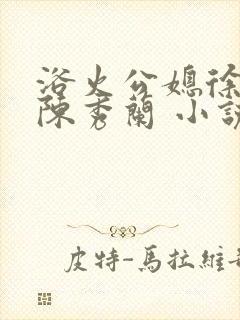 浴火公媳徐
陳秀蘭 小說
皮特-馬拉維